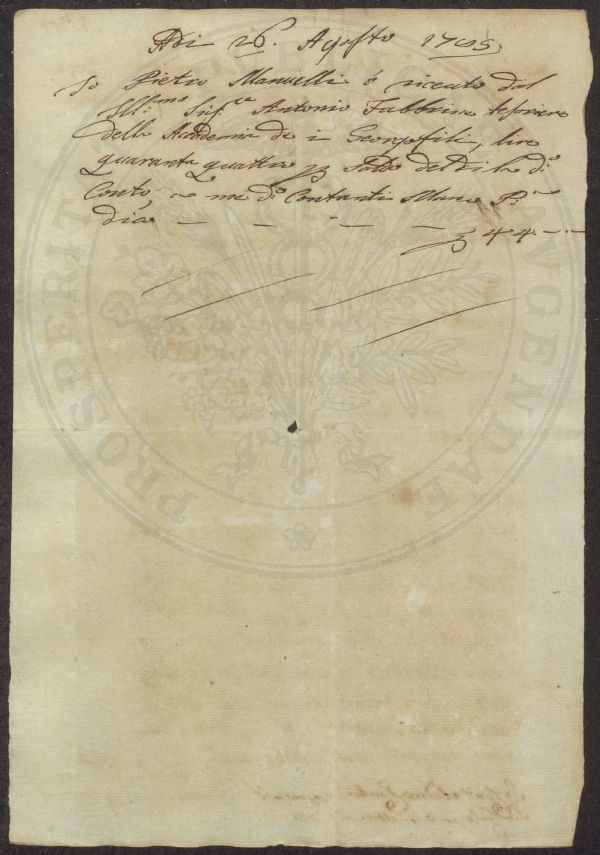 Adi 26. Agosto 1795
Io Pietro Manuelli ò riceuto dal
Ill.mo Sig.e Antonio Fabbrini tesoriere
della Accademia de i Georgofili, lire
quaranta quattro p Saldo del di la d.o
Conto, e me d.i Contanti Mano P.a
dico — — — — — £ 44 — —
PROSPERITATI PUBLICAE AVGENDAE